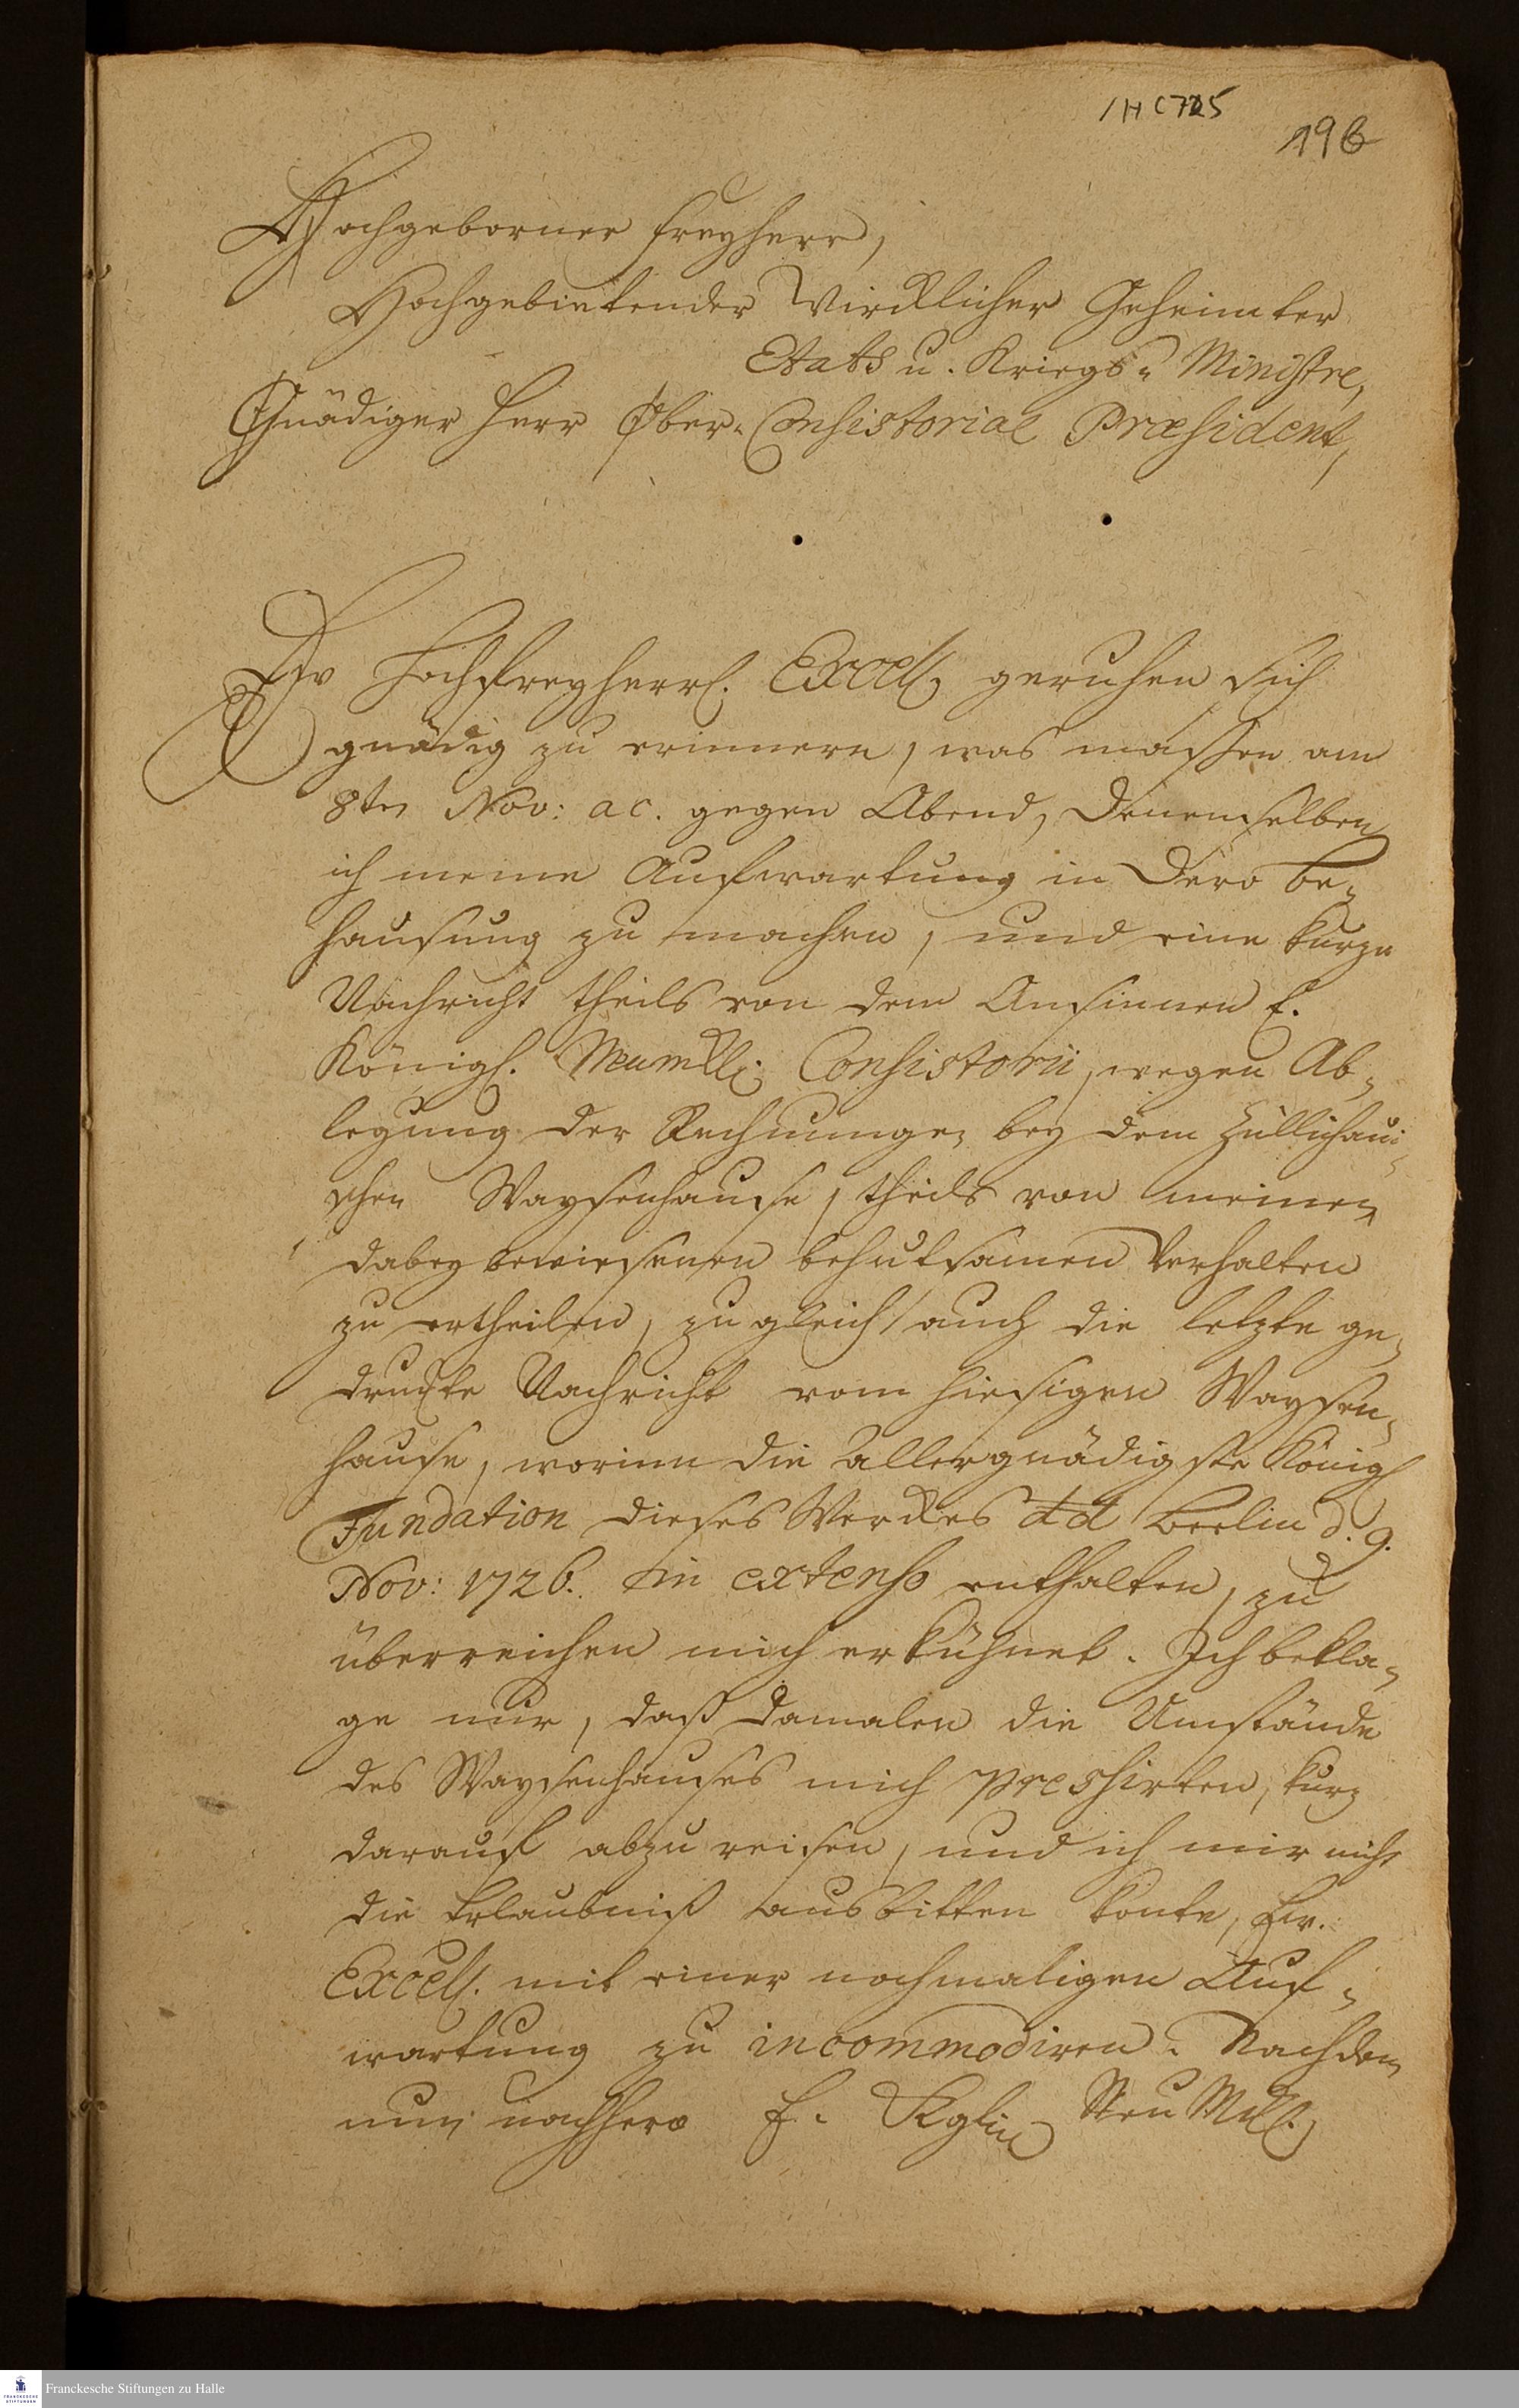 1 H C 725
196
Hochgeborner Freyherr,
Hochgebietender Wircklicher Geheimter
Etats u. Kriegs- Ministre,
Gnädiger Herr Ober-Consistorial Præsident,
Ew Hochfreyherrl. Excell. geruhen sich
gnädig zu erinnern, was maßen am
8ten Nov: a c. gegen Abend, Denenselben
ich meine Aufwartung in Dero Be-
hausung zu machen, und eine kurze
Nachricht theils von dem Ansinnen E.
Königl. Neumkl. Consistorii, wegen Ab-
legung der Rechnungen bey dem Züllichaui-
schen Waysenhause, theils von meinen
dabey bewiesenen behutsamen Verhalten
zu ertheilen, zugleich auch die letzte ge-
druckte Nachricht vom hiesigen Waysen-
hause, worinn die Allergnädigste Königl
Fundation dieses Werckes dd Berlin d. 9.
Nov: 1726. in extenso enthalten, zu
überreichen mich erkühnet. Ich bekla-
ge nur, daß damalen die Umstände
des Waysenhauses mich pressirten, kurz
darauf abzureisen, und ich mir nicht
die Erlaubniß ausbitten konte, Ew.
Excell. mit einer nochmaligen Auf-
wartung zu incommodiren. Nachdem
nun nachhero E. Kgl. Neu
Franckesche Stiftungen zu Halle